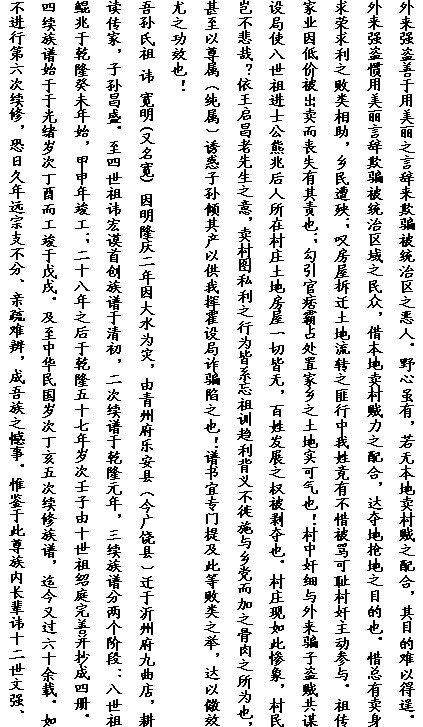 外来强盗善于用美丽之言辞来欺骗被统治区之悉人。野心虽有，若无本地卖村贼之配合，其目的难以得逞。
外来强盗惯用美丽言辞欺骗被统治区域之民众，借本地卖村贼力之配合，达夺地抢地之目的也。惜总有卖身
求荣求利之败类相助，乡民遭殃；叹房屋拆迁土地流转之匪行中我姓竟有不惜被骂可耻村奸主动参与。祖传
家业因低价被出卖而丧失有其责也；勾引官痞霸占处置家乡之土地实可气也！村中奸细与外来骗子盗贼共谋
设局使八世祖进士公熊兆后人所在村庄土地房屋一切皆无，百姓发展之权被剥夺也。村庄现如此惨象，村民
岂不悲哉？依王启昌老先生之意，卖村图私利之行为皆系忘祖训趋利背义不徒施与乡党而加之骨肉之所为也，
甚至以尊属（纯属）诱惑子孙倾其产以供我挥霍设局诈骗陷之也！谱书宜专门提及此等败类之举，达以儆效
尤之功效也！
吾孙氏祖 讳 寛明(又名寛) 因明隆庆二年因大水为灾，由青州府乐安县（今广饶县）迁于沂州府九曲店，耕
读传家，子孙昌盛。至四世祖讳宏谟首创族谱于清初，二次续谱于乾隆元年，三续族谱分两个阶段：八世祖
鲲兆于乾隆癸未年始，甲申年竣工；二十八年之后于乾隆五十七年岁次壬子由十世祖绍庭完善并抄成四册。
四续族谱始于于光绪岁次丁酉而工竣于戊戌。及至中华民国岁次丁亥五次续修族谱，迄今又过六十余载。如
不进行第六次续修，恐日久年远宗支不分、亲疏难辨，成吾族之憾事。惟鉴于此尊族内长辈讳十二世文强、